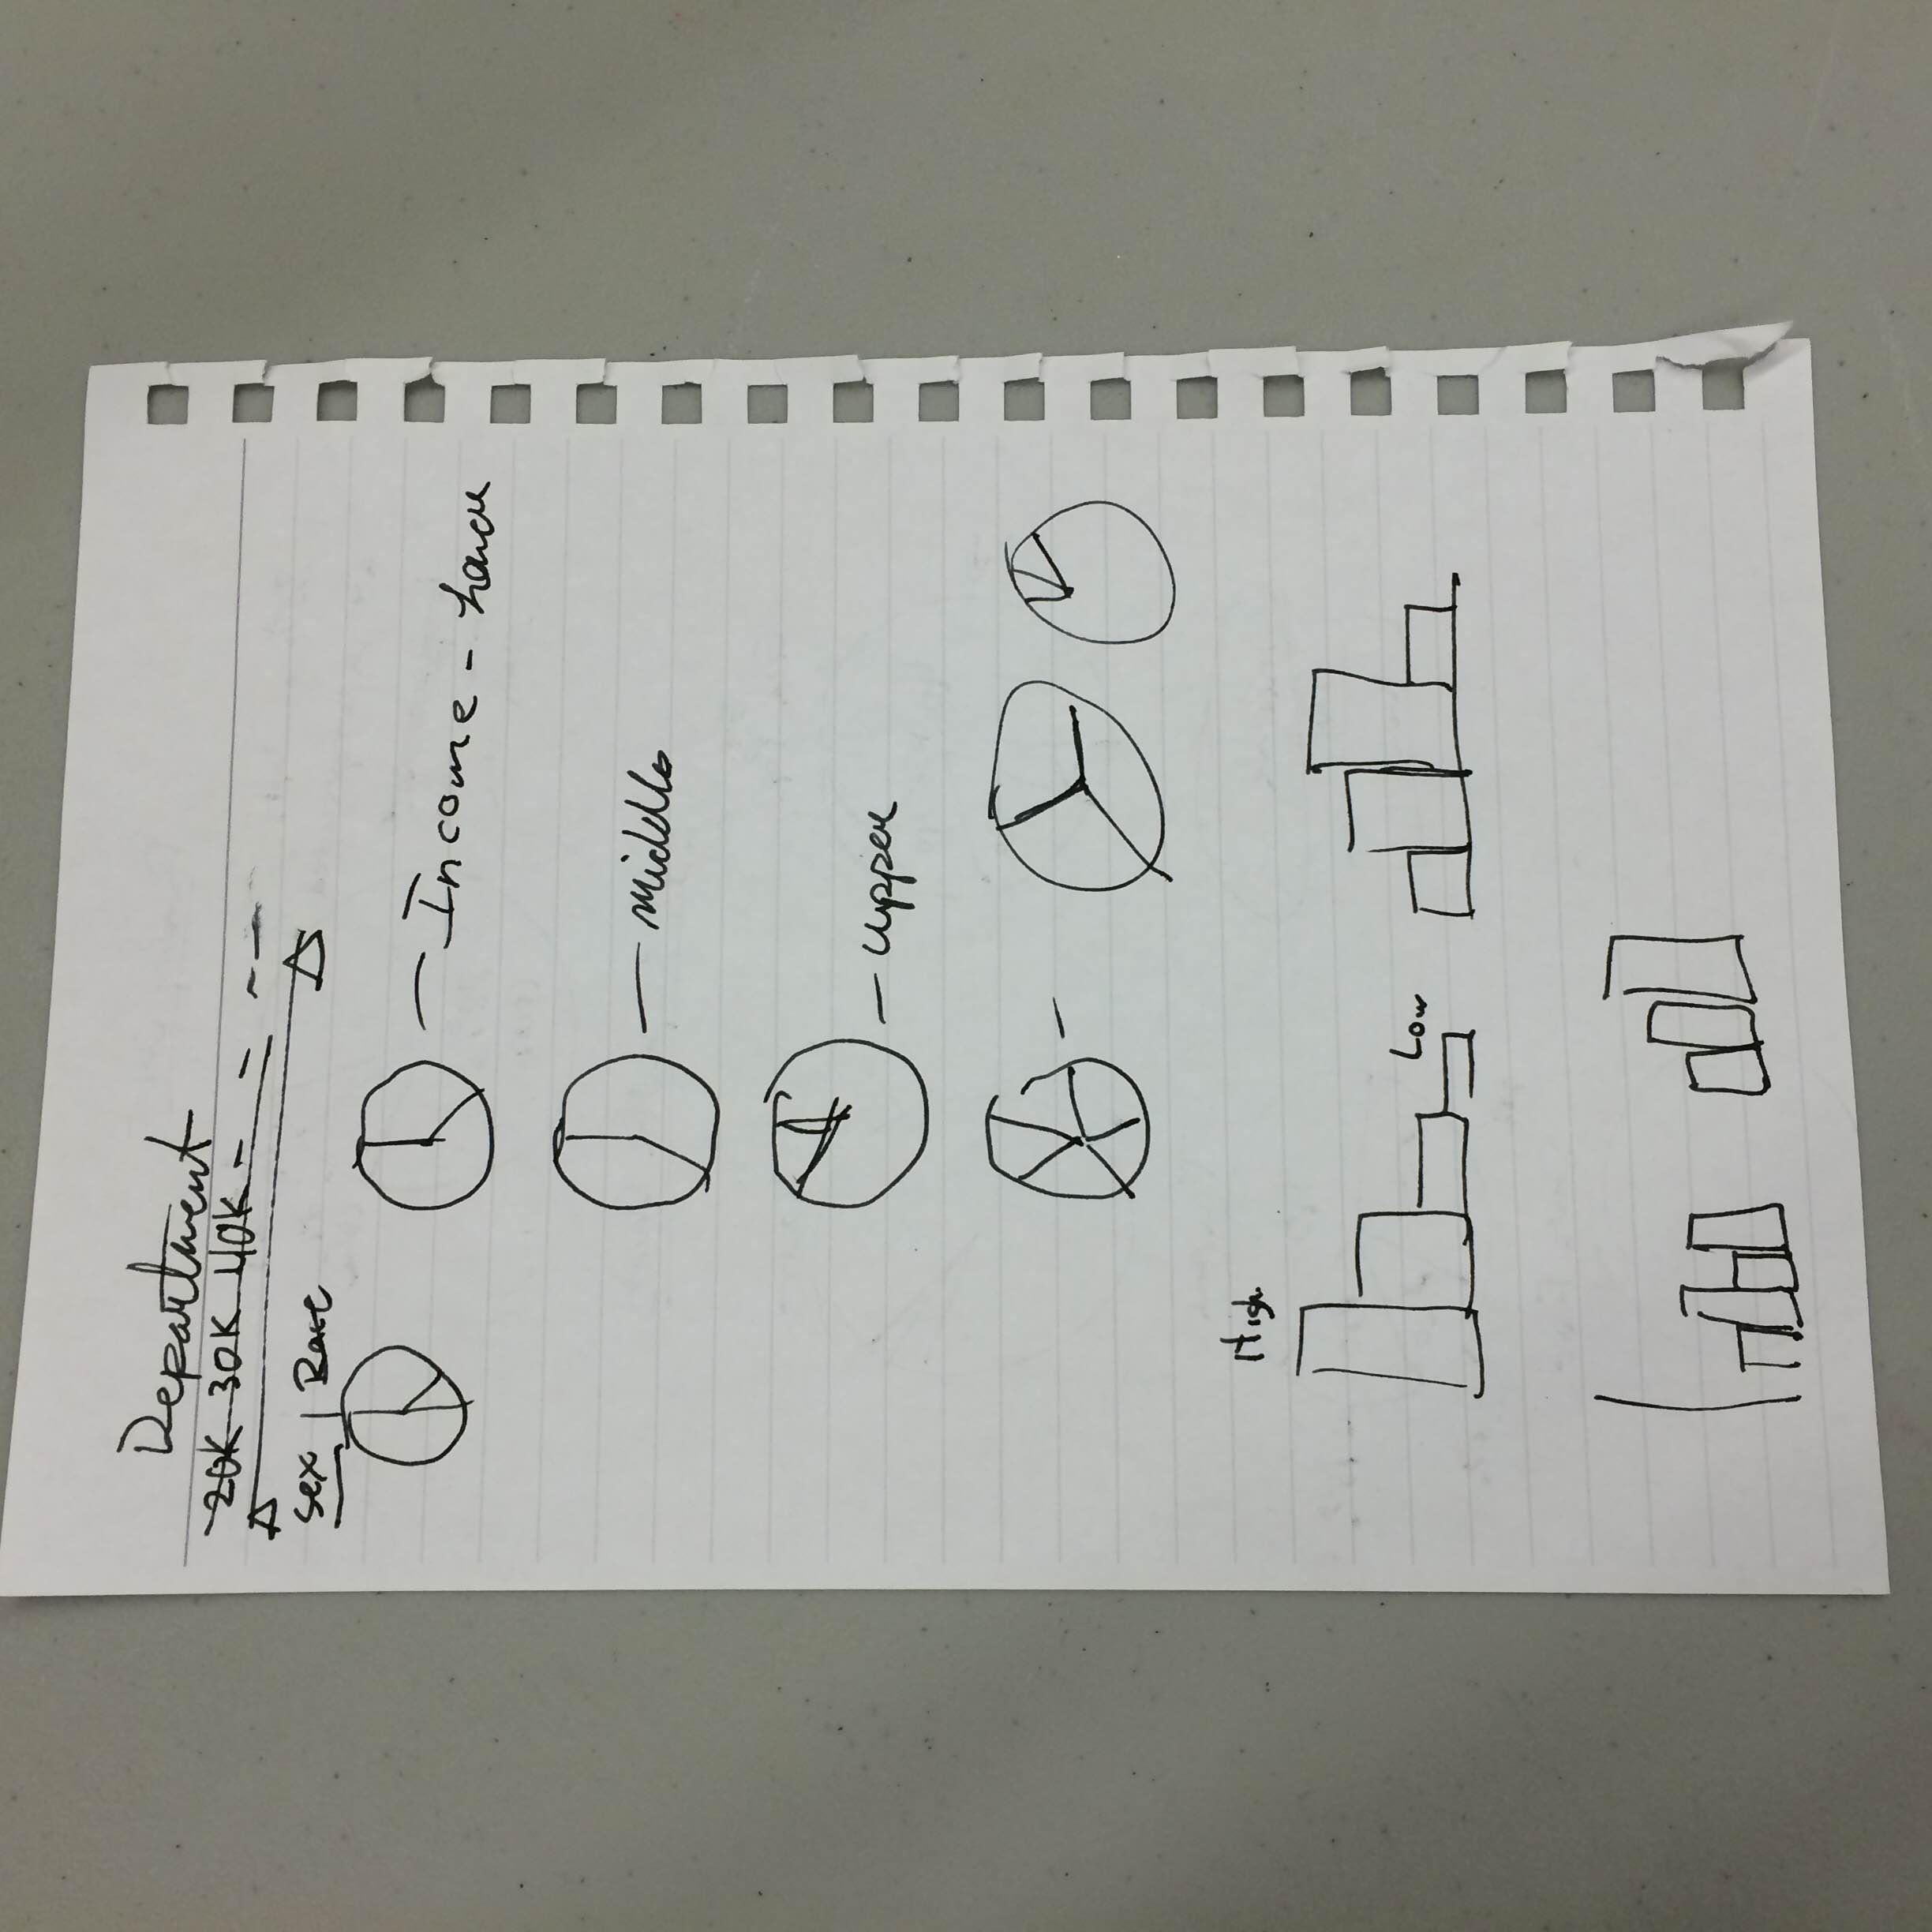 Department
20K 30K 40K - - - -
sex | Race
Income - lower
middle
upper
High
Low